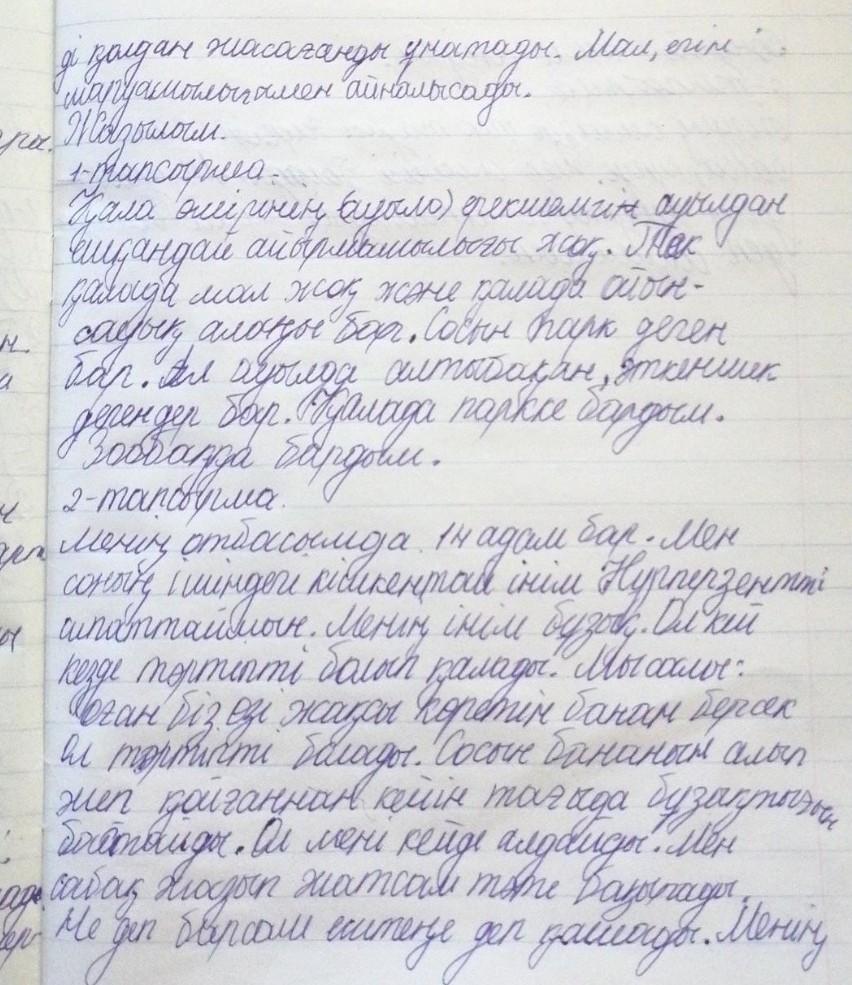 ді қолдан жасағанды ұнатады. Мал, егін
шаруашылығымен айналысады.
Жазылым.
1-тапсырма.
Қала өмірінің (ауыл) ерекшелігін ауылдан
ешқандай айырмашылығы жоқ. Тек
қалада мал жоқ және қалада ойын-
сауық алаңы бар. Сосын парк деген
бар. Ал ауылда алтыбақан, әткеншек
дегендер бар. Қалада паркке бардым.
Зообаққа бардым.
2-тапсырма.
Менің отбасымда 14 адам бар. Мен
соның ішіндегі кішкентай інім Нұрперзентті
сипаттаймын. Менің інім бұзық. Ол кей
кезде тәртіпті болып қалады. Мысалы:
Оған біз өзі жақсы көретін банан берсек
Ол тәртіпті болады. Сосын бананын алып
жеп қойғаннан кейін тағыда бұзақтығын
бастайды. Ол мені кейде алдайды. Мен
сабақ жазып жатсам тәте бақырады.
Не деп барсам ештеңе деп қашады. Менің